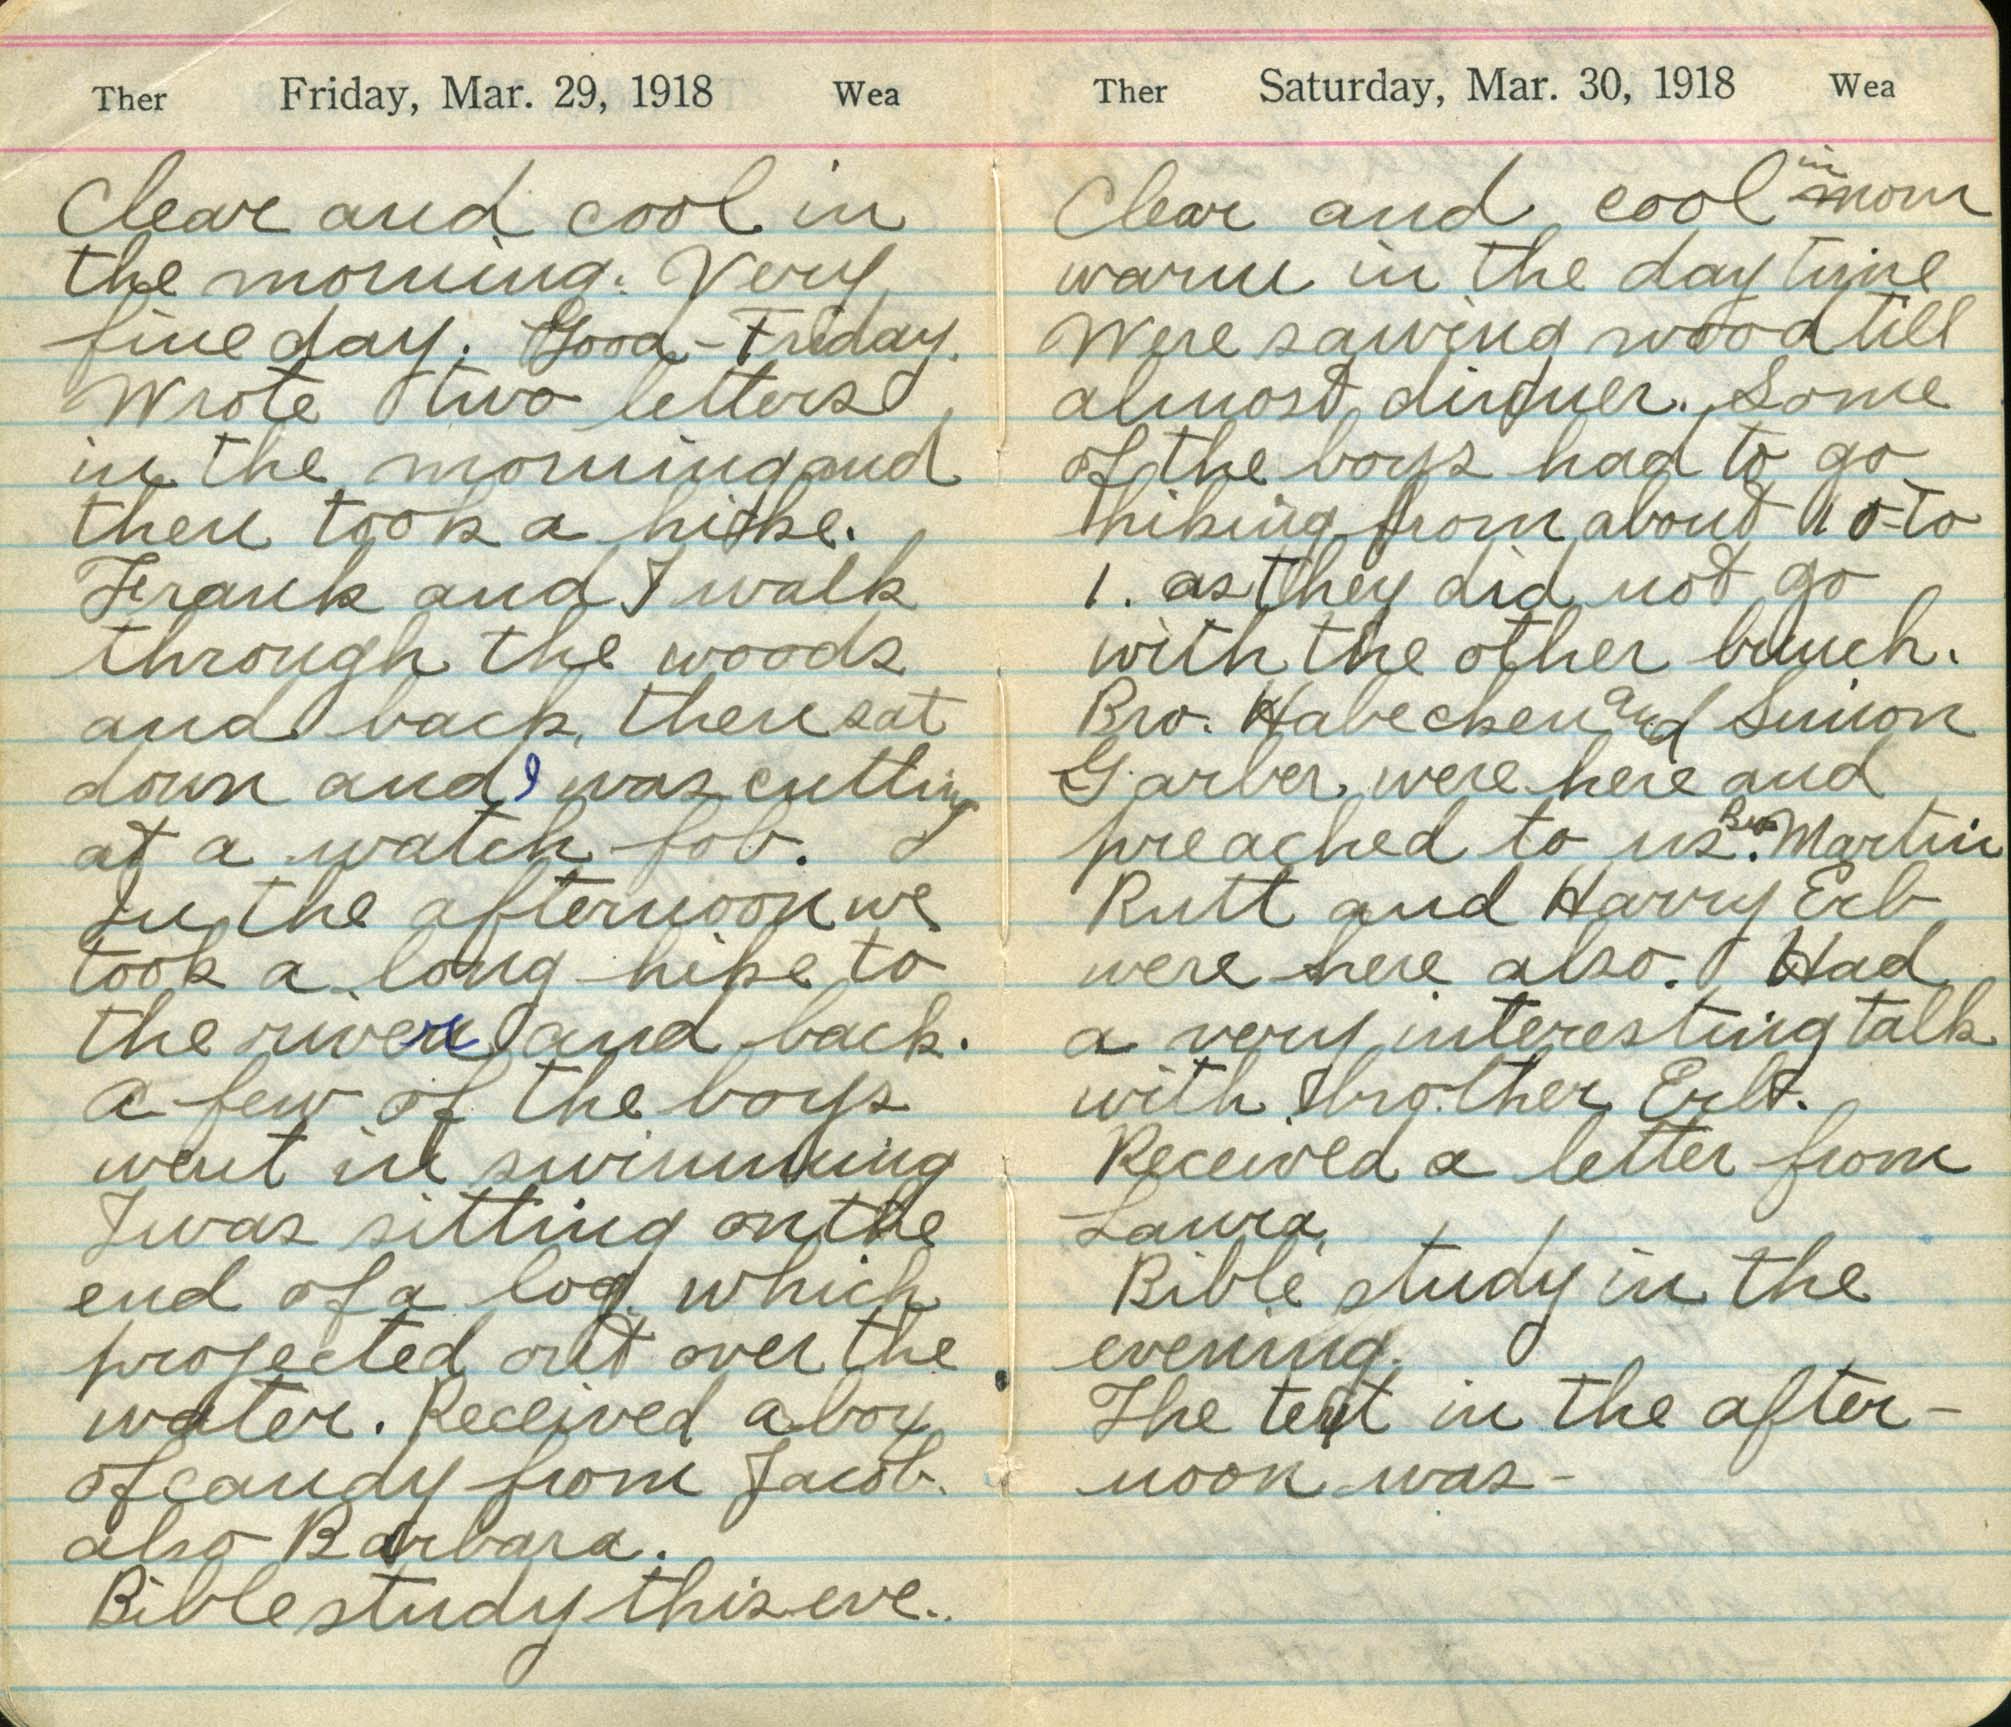 Ther Friday, Mar. 29, 1918 Wea
Clear and cool in
the morning. Very
fine day. Good-Friday.
Wrote two letters
in the morning and
then took a hike.
Frank and I walk
through the woods
and back, then sat
down and I was cutting
at a watch fob.
In the afternoon we
took a long hike to
the river and back.
A few of the boys
went in swimming
I was sitting on the
end of a log which
projected out over the
water. Received a box
of candy from Jacob.
also Barbara.
Bible study this eve.
Ther Saturday, Mar. 30, 1918 Wea
Clear and cool in morn
warm in the day time
Were sawing wood till
almost dinner. Some
of the boys had to go
hiking from about 10 to
1. as they did not go
with the other bunch.
Bro. Habecker and Simon
Garber were here and
preached to us. Bro Martin
Rutt and Harry Erb
were here also. Had
a very interesting talk
with brother Erb.
Received a letter from
Laura.
Bible study in the
evening.
The text in the after-
noon was-